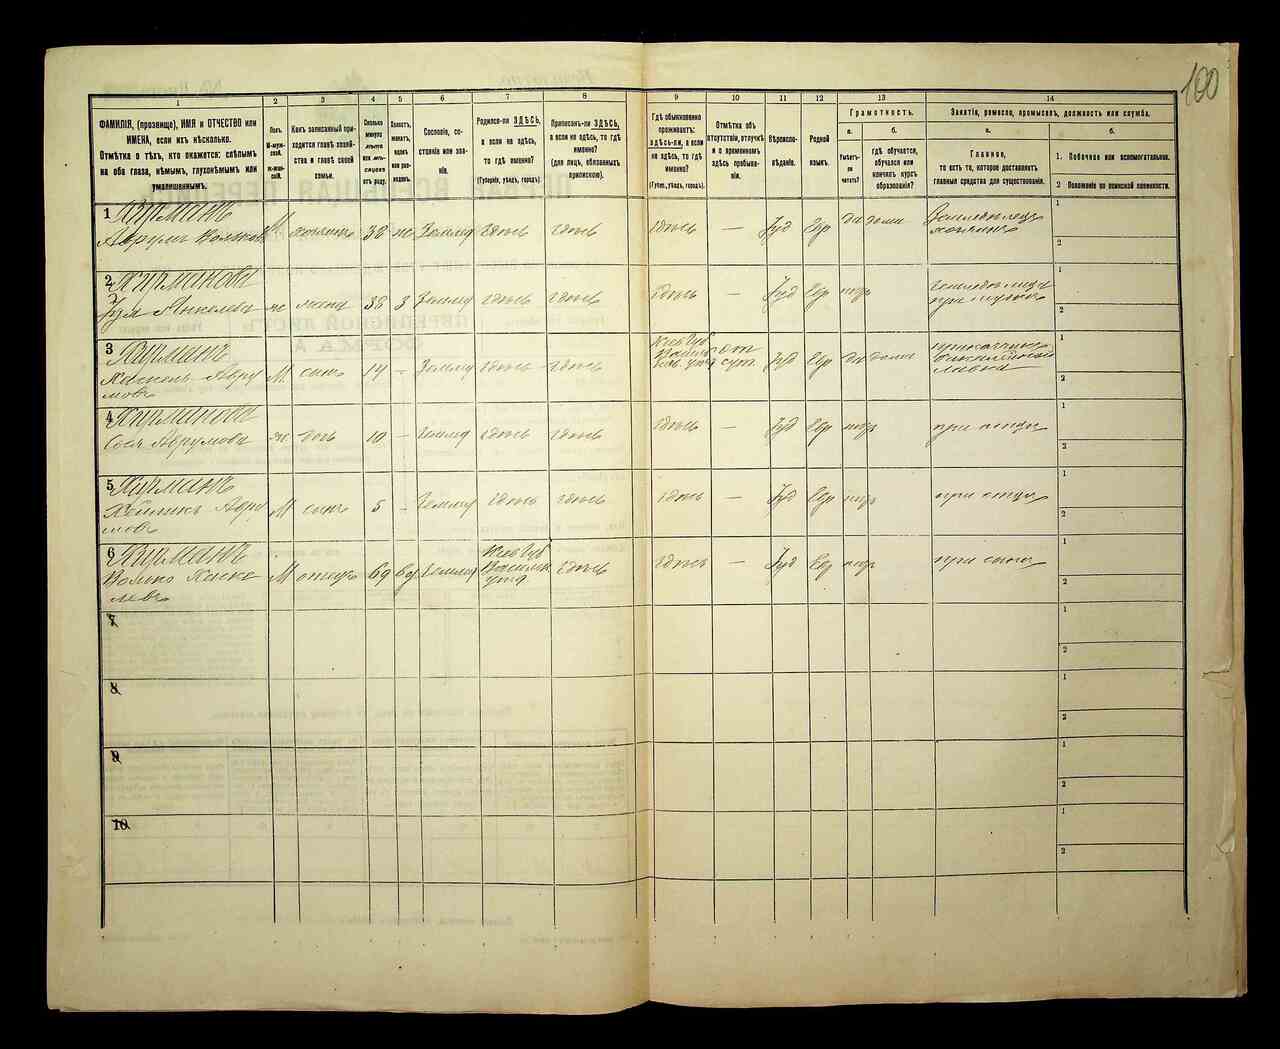 100
1
2
3
4
5
6
7
8
9
10
11
12
13
14
ФАМИЛІЯ, (прозвище), ИМЯ и ОТЧЕСТВО или
ИМЕНА, если ихъ нѣсколько.
Отмѣтка о тѣхъ, кто окажется: слѣпымъ
на оба глаза, нѣмымъ, глухонѣмымъ или
умалишеннымъ.
Полъ.
М-муж-
ской.
Ж-жен-
скій.
Какъ записанный при-
ходится главѣ хозяй-
ства и главѣ своей
семьи.
Сколько
минуло
лѣтъ
или мѣ-
сяцевъ
отъ роду.
Холостъ,
женатъ,
вдовъ
или раз-
веденъ.
Сословіе, со-
стояніе или зва-
ніе.
Родился-ли ЗДѢСЬ,
а если не здѣсь,
то гдѣ именно?
(Губернія, уѣздъ, городъ).
Приписанъ-ли ЗДѢСЬ,
а если не здѣсь, то гдѣ
именно?
(для лицъ, обязанныхъ
припискою).
Гдѣ обыкновенно
проживаетъ:
здѣсь-ли, а если
не здѣсь, то гдѣ
именно?
(Губ., уѣздъ, городъ).
Отмѣтка объ
отсутствіи, отлучкѣ
и о временномъ
здѣсь пребыва-
ніи.
Вѣроиспо-
вѣданіе.
Родной
языкъ.
Грамотность.
а.
б.
Умѣетъ-
ли
читать?
гдѣ обучается,
обучался или
кончилъ курсъ
образованія?
Занятіе, ремесло, промыселъ, должность или служба.
а.
б.
Главное,
то есть то, которое доставляетъ
главныя средства для существованія.
1. Побочное или вспомогательное.
2 Положеніе по воинской повинности.
1 Курманъ
Аврумъ Вольков М хозяинъ 38 ж Землед здѣсь здѣсь здѣсь — Іуд Евр да дома Земледѣлецъ
хозяинъ
1
2
2 Курманова
Янкелев ж жена 38 з Землед здѣсь здѣсь здѣсь — Іуд Евр нѣтъ
при мужѣ
1
2
3 Курманъ
Хаскель Авру
мовъ М сынъ — Землед здѣсь здѣсь Кіев Губ
Васильк
уѣзд от
сут. Іуд Евр да дома прикащикъ
бакалейной
лавки
1
2
4 Курманова
Аврумова ж дочь 10 — Землед здѣсь здѣсь здѣсь — Іуд Евр нѣтъ при отцѣ
1
2
5 Курманъ
Авру
мовъ М сынъ 5 - Землед здѣсь здѣсь здѣсь — Іуд Евр нѣтъ при отцѣ
1
2
6 Курманъ
Волько Хаске
левъ М отецъ 69 вд Землед Кіев Губ
Васильк
уѣзд здѣсь здѣсь — Іуд Евр нѣтъ при сынѣ
1
2
7
1
2
8
1
2
9
1
2
10
1
2